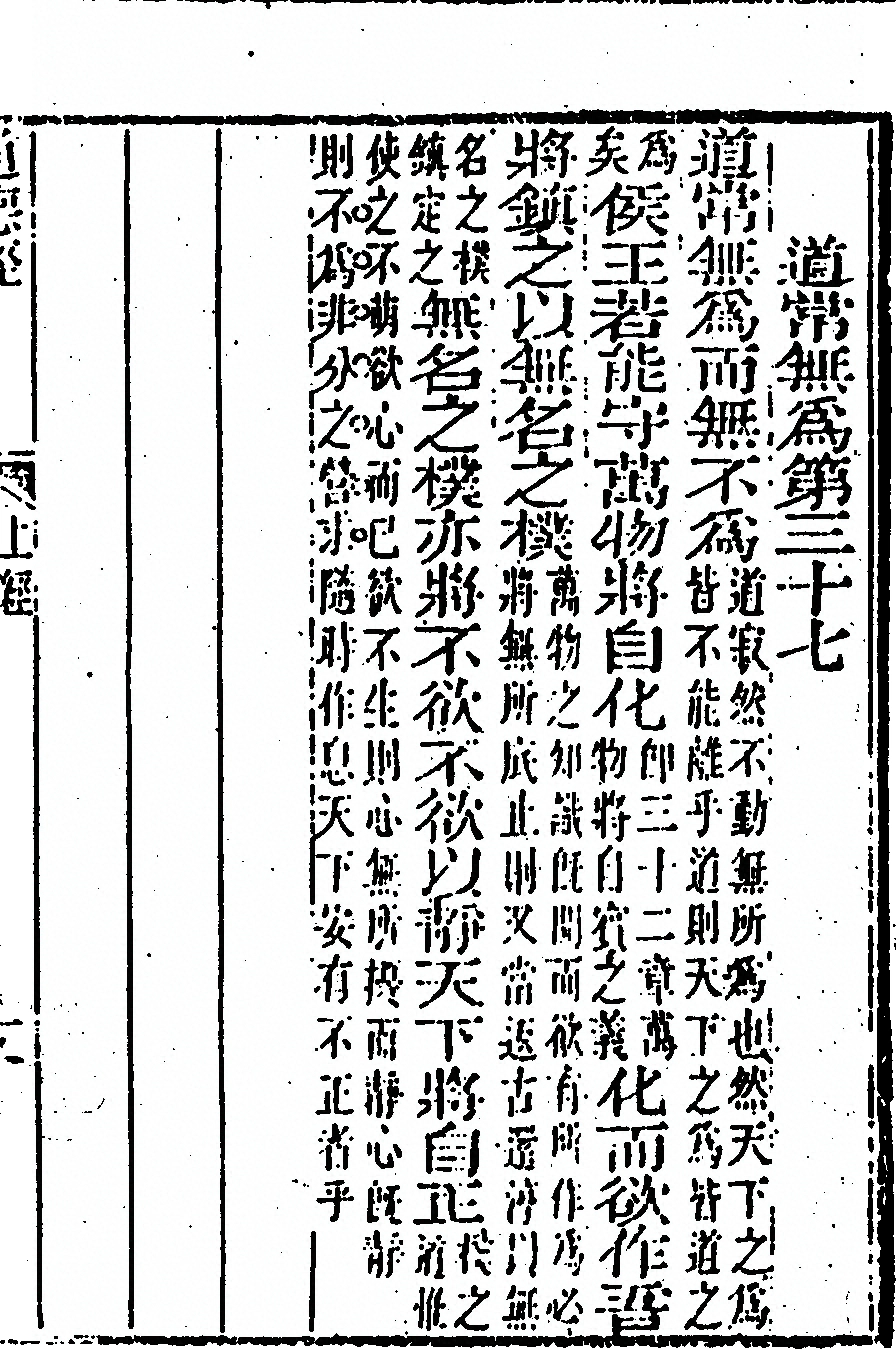 道常無爲第三十七
道常無爲而無不爲道寂然不動無所爲也然天下之爲皆不能離乎道則天下之爲皆道之
爲矣侯王若能守萬物將自化卽三十二章萬物將自賓之義化而欲作吾
將鎮之以無名之樸萬物之知識旣開而欲有所作爲必將無所底止則又當返古還淳以無
名之樸鎮定之無名之樸亦將不欲不欲以靜天下將自正樸之道惟
使之不萌欲心而已欲不生則心無所擾而靜心旣靜則不爲非分之營求隨時作息天下安有不正者乎